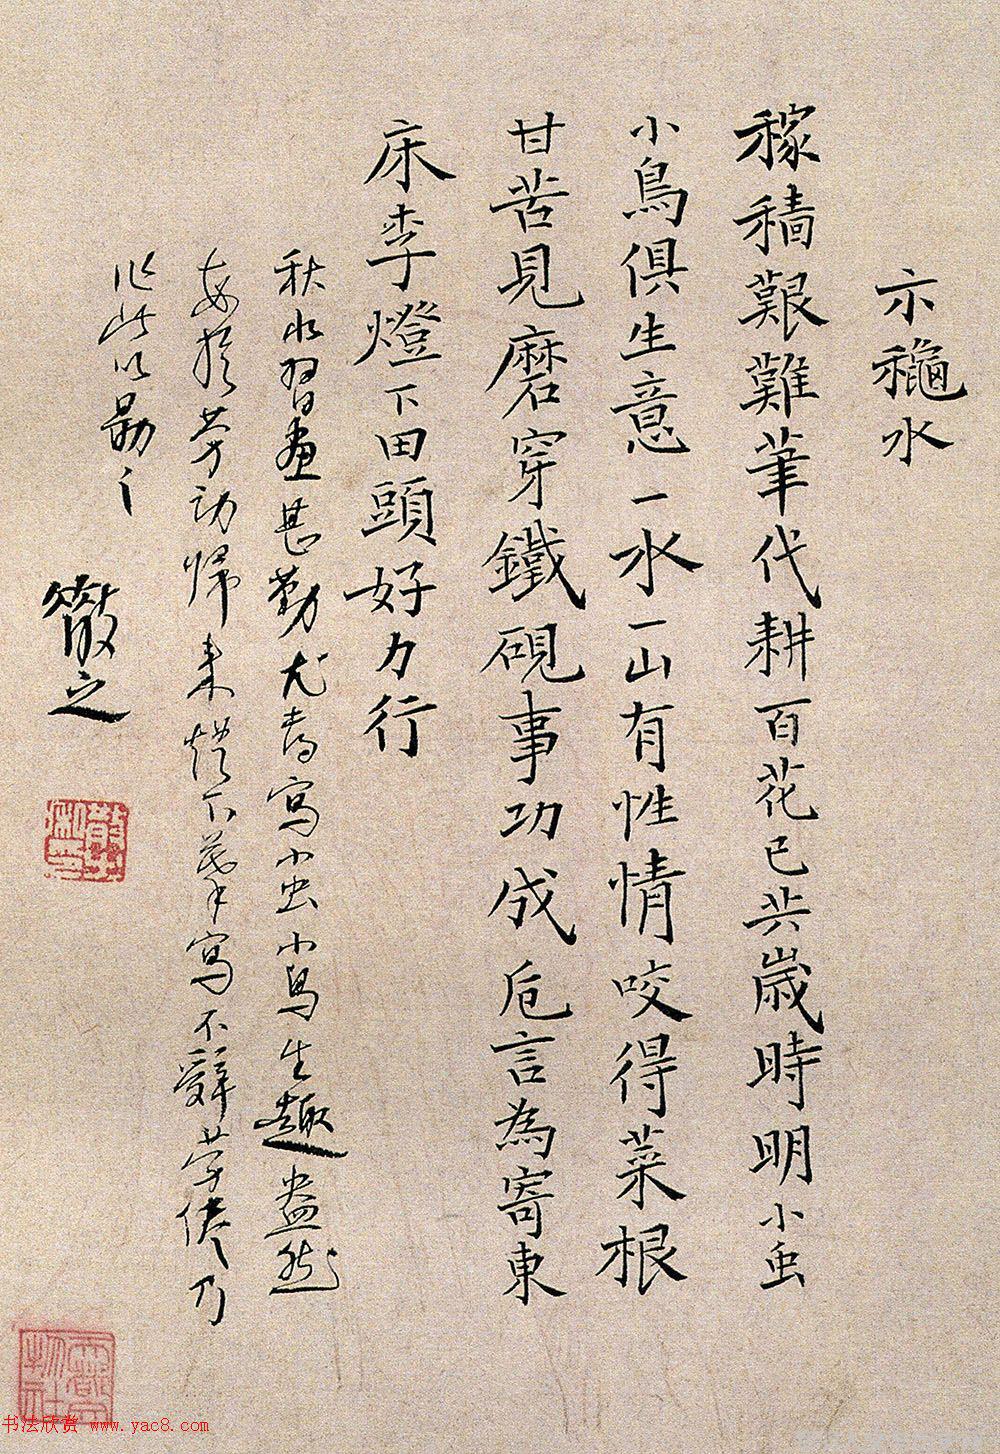 示龝水
稼穡艱難筆代耕百花已共歲時明小虫
小鳥俱生意一水一山有性情咬得菜根
甘苦見磨穿鐵硯事功成卮言為寄東
床李燈下田頭好力行
秋水習畫甚勤尤喜寫小虫小鳥生趣盎然
每於勞動歸來燈下篝寫不辭勞倦乃
作此以勗之
散之
书法欣赏 www.yac8.com